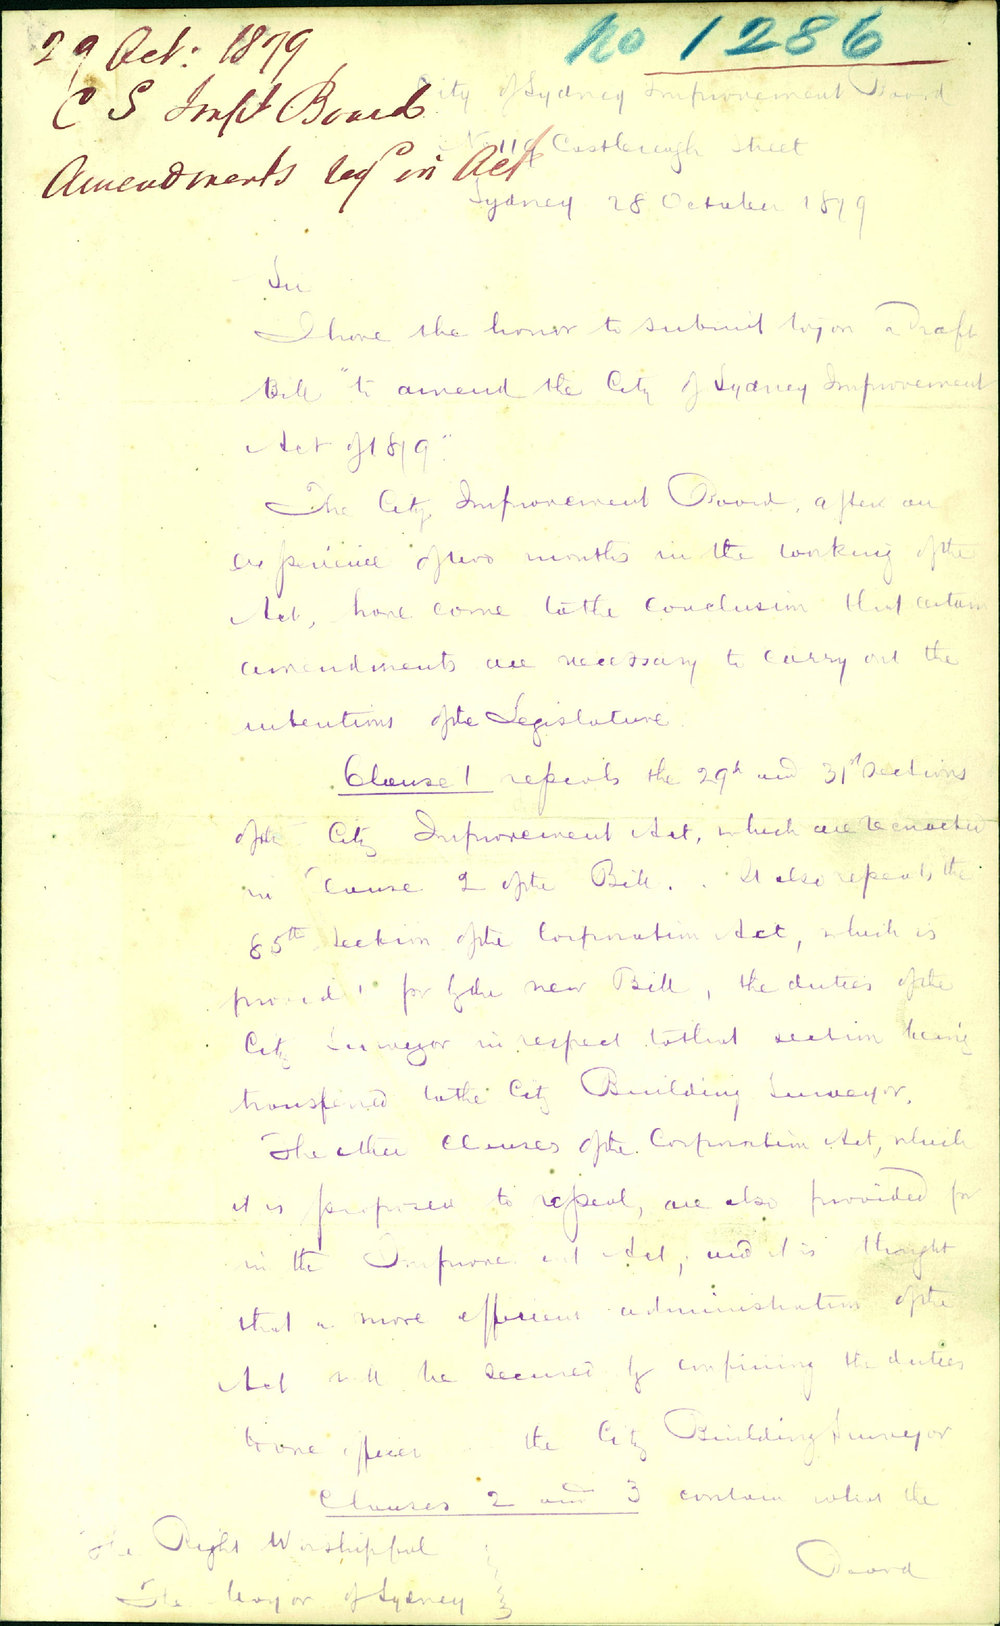 29 Oct: 1879
No 1286
C S Impt Board
Amendments reqd in Act
City of Sydney Improvement Board
No 119 Castlereagh Street
Sydney 28 October 1879
Sir
I have the honor to submit to you a Draft
Bill "to amend the City of Sydney Improvement
Act of 1879".
The City Improvement Board, after an
experience of two months in the working of the
Act, have come to the conclusion that certain
amendments are necessary to carry out the
intentions of the Legislature.
Clause 1 repeals the 29th and 31st sections
of the City Improvement Act, which are re enacted
in Clause 2 of the Bill. It also repeals the
85th Section of the Corporation Act, which is
provided for by the new Bill, the duties of the
City Surveyor in respect to that section being
transferred to the City Building Surveyor.
The other Clauses of the Corporation Act, which
it is proposed to repeal, are also provided for
in the Improvement Act, and it is thought
that a more efficient administration of the
Act will be secured by confining the duties
to one officer the City Building Surveyor
Clauses 2 and 3 contain what the
Board
The Right Worshipful
The Mayor of Sydney